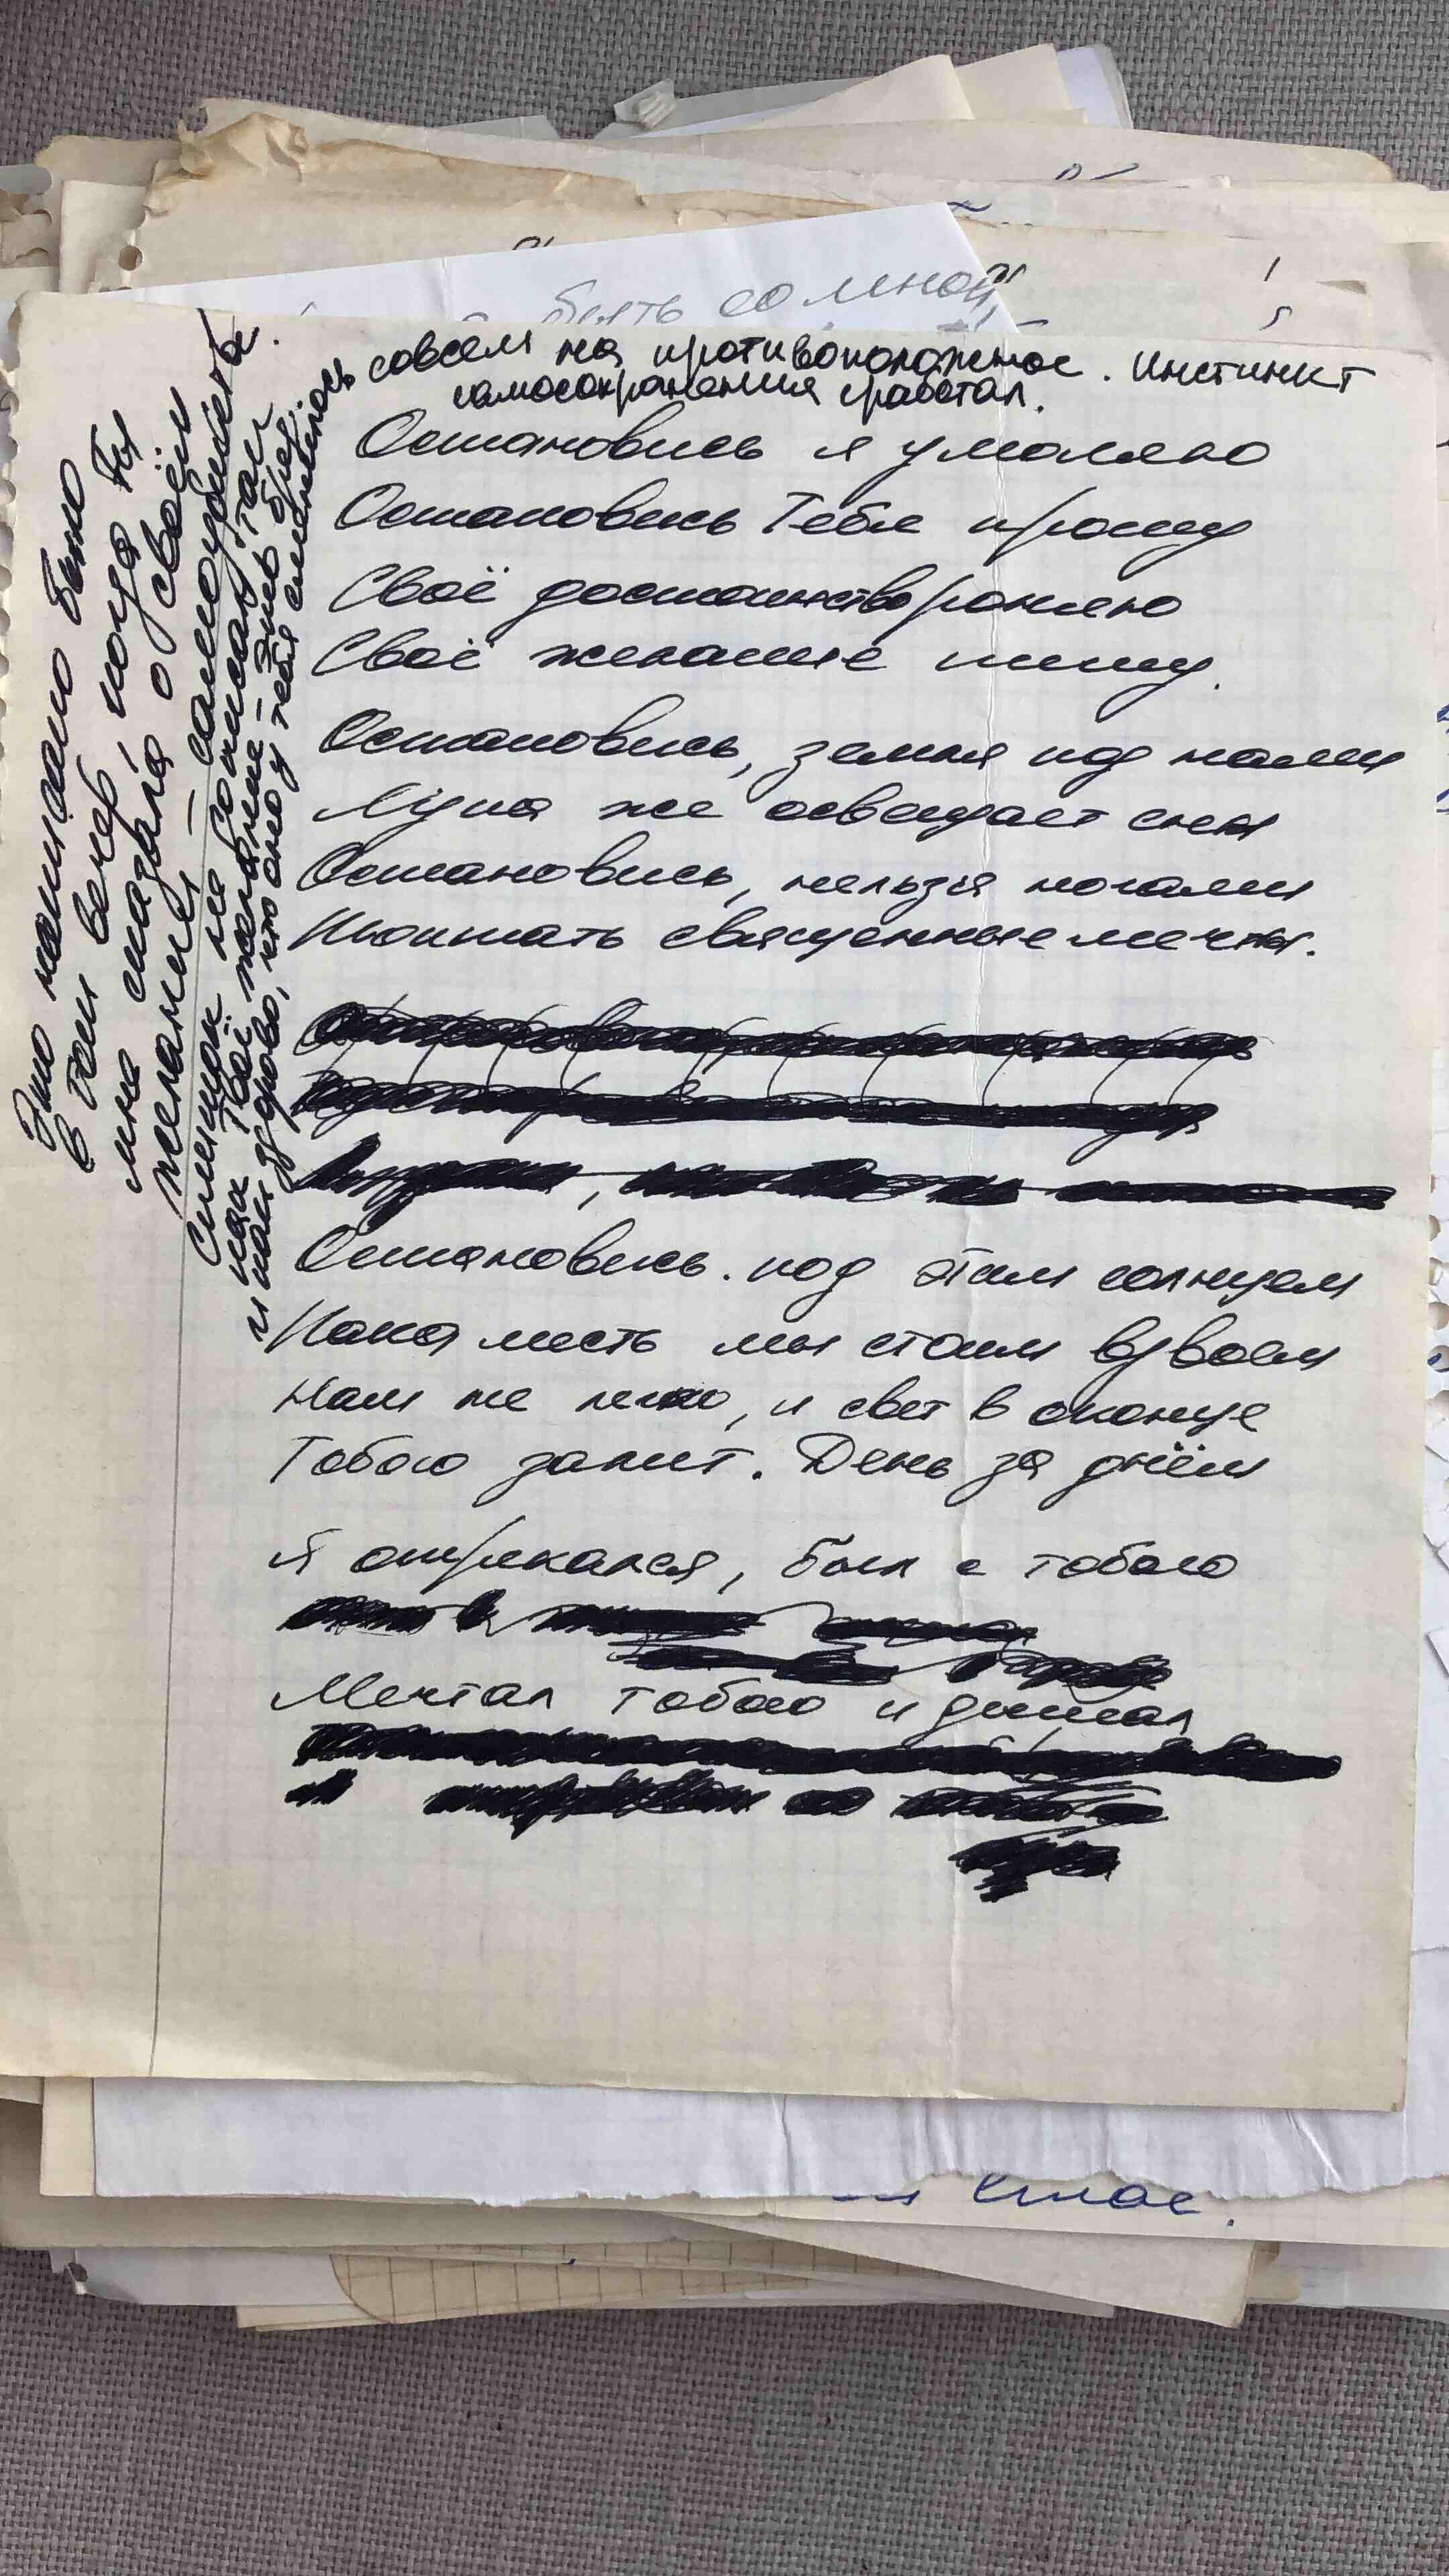 быть со мной,
Это написано было
в тот вечер, когда ты
мне сказала о своём
желании –
самоубийства.
Слишком не
на твоё желание – Этот бред.
и как здорово, что оно у тебя сменилось
совсем на противоположное. Инстинкт
самосохранения сработал.
Остановись я умоляю
Остановись Тебя прошу
Своё достоинство роняю
Своё желание пишу.
Остановись, земля под нами
Луна же освещает сны
Остановись, нельзя ногами
Топтать священные мечты.
Остановись. под этим солнцем
Пока месть мы стоим вдвоём
Нам же легко, и свет в оконце
Тобою залит. День за днём
Я отрекался, был с тобою
Мечтал тобою и дышал